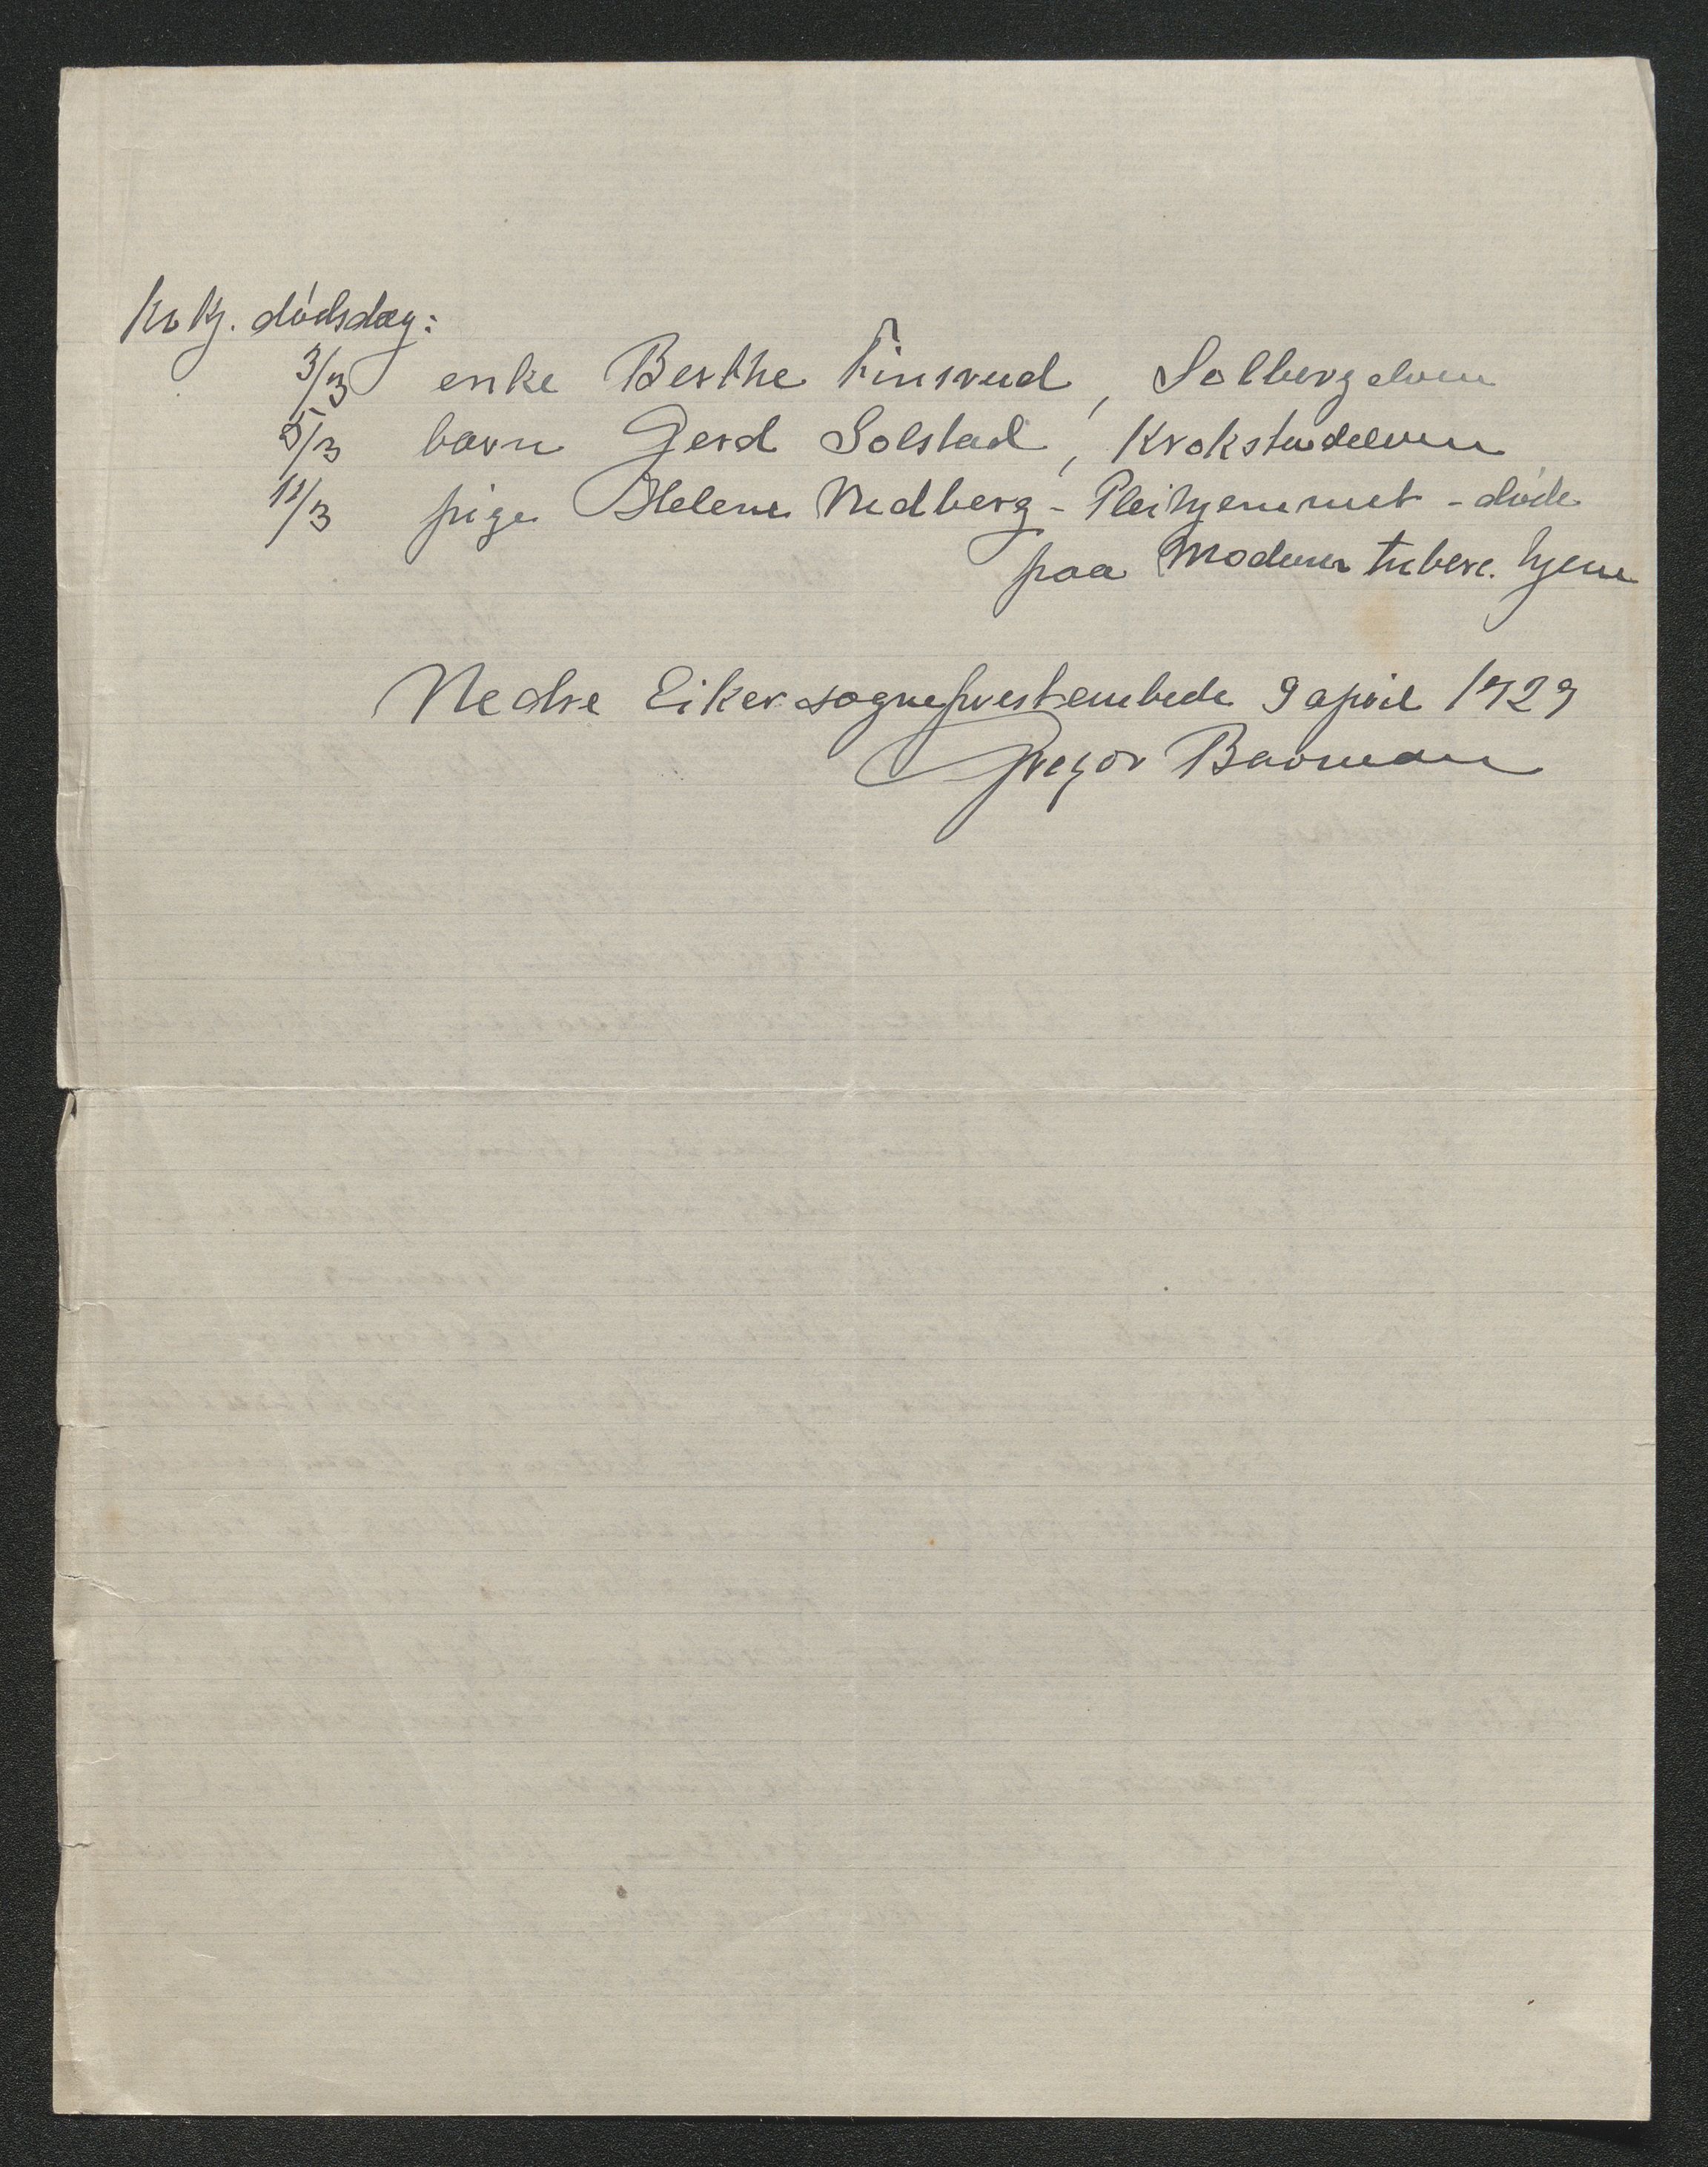 Kvkj. dødsdag:
3/3 enke Berthe Finsrud, Solbergelven
5/3 barn Gerd Solstad, Krokstadelven
12/3 pige Helene Nedberg - Pleihjemmet - døde
paa Modum tuberc. hjem
Nedre Eiker sogneprestembede 9 april 1929
Gregor Barman